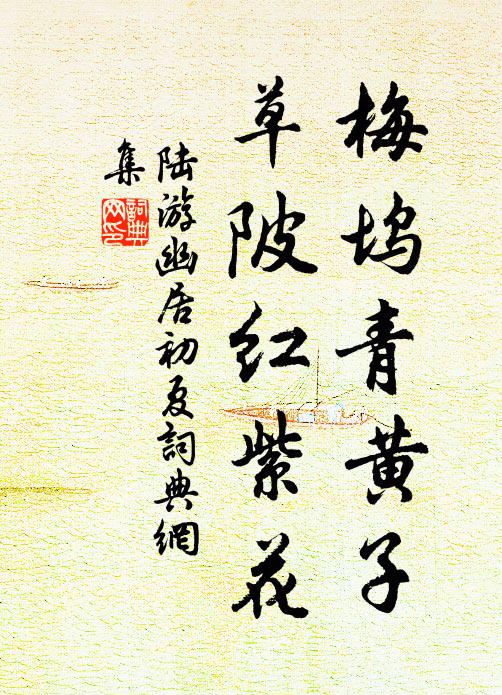 梅坞青黄子
草陂红紫花
陆游幽居初夏詞典網
集
詞典
网印